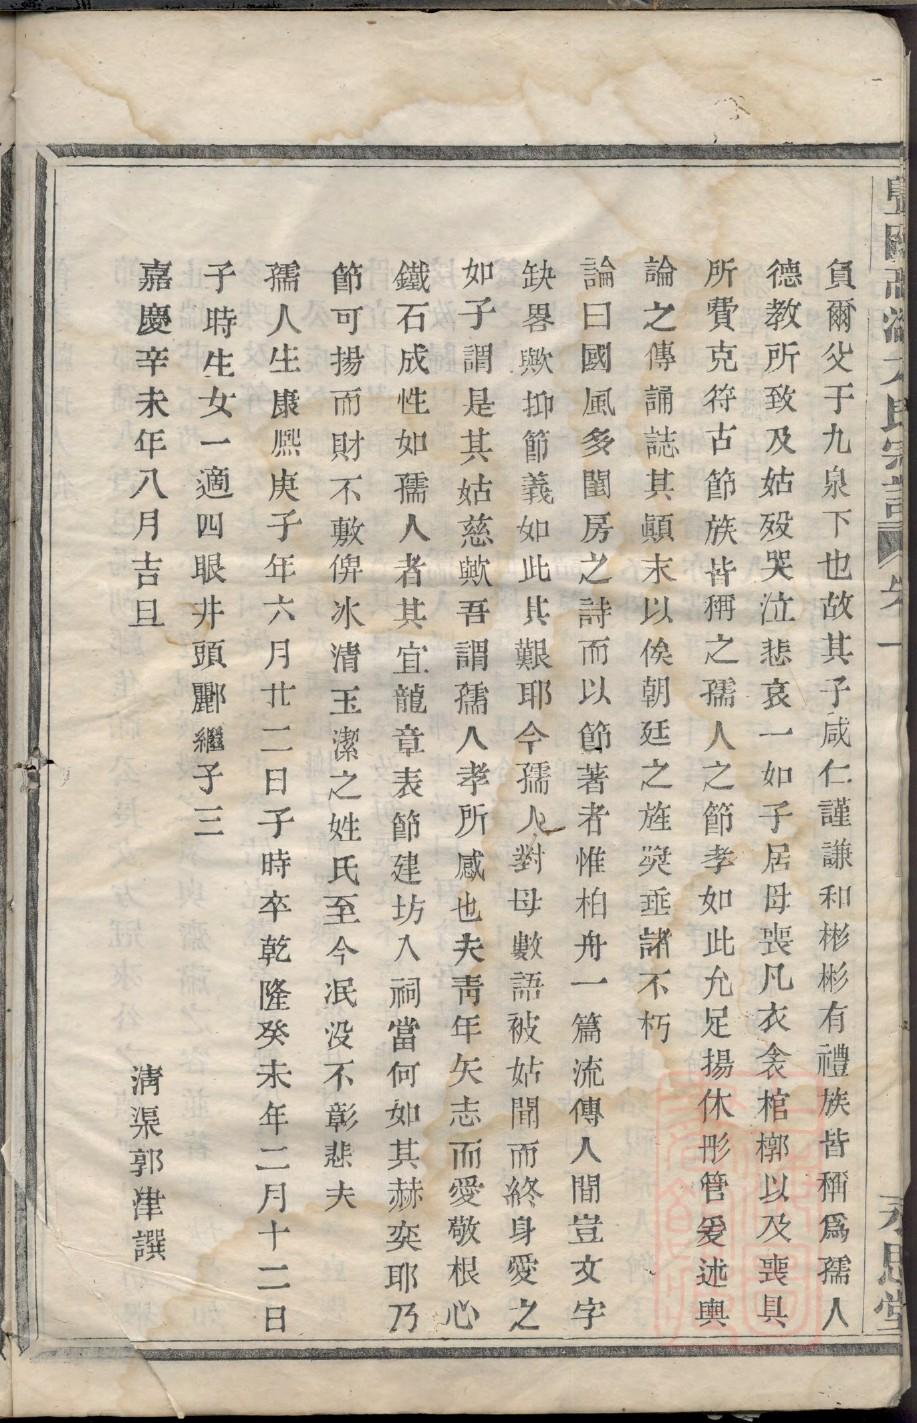 負爾父于九泉下也故其子咸仁謹謙和彬彬有禮族皆稱爲孺人
德教所致及姑歿哭泣悲哀一如子居母喪凡衣衾棺槨以及喪具
所費克符古節族皆稱之孺人之節孝如此允足揚休形管爰述輿
論之傳誦誌其顚末以俟朝廷之旌奨垂諸不朽
論曰國風多閨房之詩而以節著者惟柏舟一篇流傳人間豈文字
缺畧歟抑節義如此其艱耶今孺人對母數語被姑聞而終身愛之
如子謂是其姑慈歟吾謂孺人孝所感也夫靑年矢志而愛敬根心
鐵石成性如孺人者其宜龍章表節建坊入祠當何如其赫奕耶乃
節可揚而財不敷俾冰清玉潔之姓氏至今泯没不彰悲夫
孺人生康熙庚子年六月廿二日子時卒乾隆癸未年二月十二日
子時生女一適四眼井頭酈繼子三
嘉慶辛未年八月吉旦
清渠郭津譔
氏宗譜 卷一
永思堂